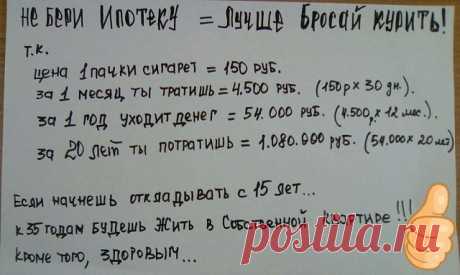 НЕ БЕРИ ИПОТЕКУ = ЛУЧШЕ БРОСАЙ КУРИТЬ!
Т.К.
ЦЕНА 1 ПАЧКИ СИГАРЕТ = 150 РУБ.
ЗА 1 МЕСЯЦ ТЫ ТРАТИШЬ = 4.500 РУБ. (150р х 30 дн.)
ЗА 1 ГОД УХОДИТ ДЕНЕГ = 54.000 РУБ. (4.500р х 12 мес.)
ЗА 20 ЛЕТ ТЫ ПОТРАТИШЬ = 1.080.000 РУБ. (54.000 х 20 лет)
ЕСЛИ НАЧНЕШЬ ОТКЛАДЫВАТЬ С 15 ЛЕТ...
К 35 ГОДАМ БУДЕШЬ ЖИТЬ В СОБСТВЕННОЙ КВАРТИРЕ!!!
КРОМЕ ТОГО, ЗДОРОВЫМ...
postila.ru